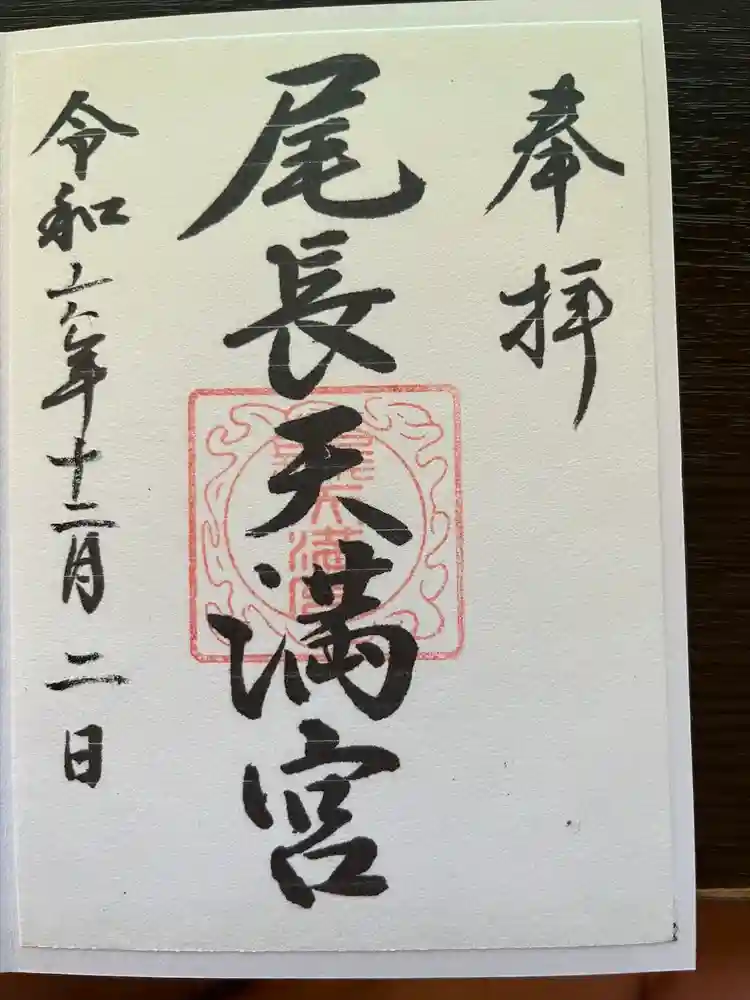 奉拝
尾長天満宮
令和六年十二月二日